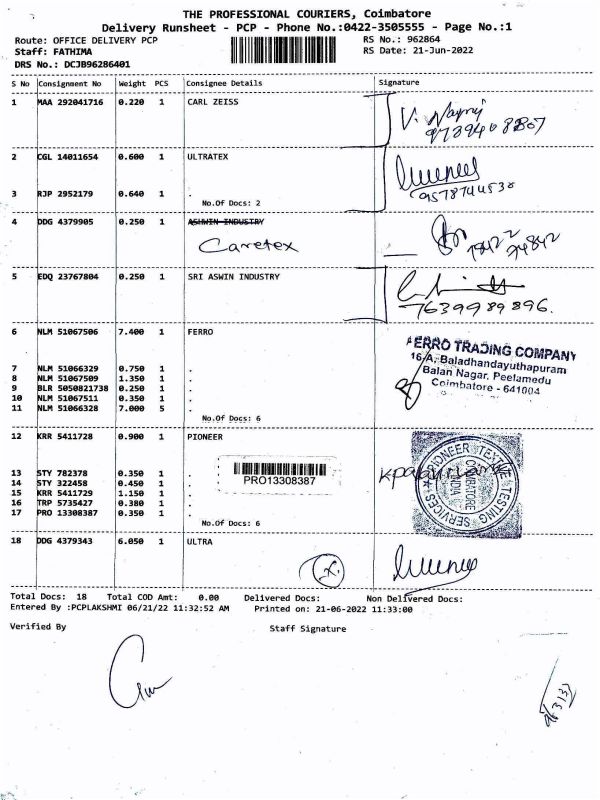 THE PROFESSIONAL COURIERS, Coimbatore
Delivery Runsheet - PCP - Phone No.:0422-3505555 - Page No.:1
Route: OFFICE DELIVERY PCP RS No.: 962864
Staff: FATHIMA RS Date: 21-Jun-2022
DRS No.: DCJB96286401
S No Consignment No Weight PCS Consignee Details Signature
1 MAA 292041716 0.220 1 CARL ZEISS
2 CGL 14011654 0.600 1 ULTRATEX
3 RJP 2952179 0.640 1 .
No.Of Docs: 2
4 DDG 4379905 0.250 1 ASHWIN INDUSTRY
Caretex
5 EDQ 23767804 0.250 1 SRI ASWIN INDUSTRY
7639989896.
6 NLM 51067506 7.400 1 FERRO
FERRO TRADING COMPANY
16-A, Baladhandayuthapuram
Balan Nagar, Peelamedu
Coimbatore - 641004
7 NLM 51066329 0.750 1 .
8 NLM 51067509 1.350 1 .
9 BLR 5050821738 0.250 1 .
10 NLM 51067511 0.350 1 .
11 NLM 51066328 7.000 5 .
No.Of Docs: 6
12 KRR 5411728 0.900 1 PIONEER
PIONEER TEXTILE TESTING SERVICES
COIMBATORE
INDIA
13 STY 782378 0.350 1 .
14 STY 322458 0.450 1 .
PRO13308387
15 KRR 5411729 1.150 1 .
16 TRP 5735427 0.380 1 .
17 PRO 13308387 0.350 1 .
No.Of Docs: 6
18 DDG 4379343 6.050 1 ULTRA
Total Docs: 18 Total COD Amt: 0.00 Delivered Docs: Non Delivered Docs:
Entered By :PCPLAKSHMI 06/21/22 11:32:52 AM Printed on: 21-06-2022 11:33:00
Verified By Staff Signature